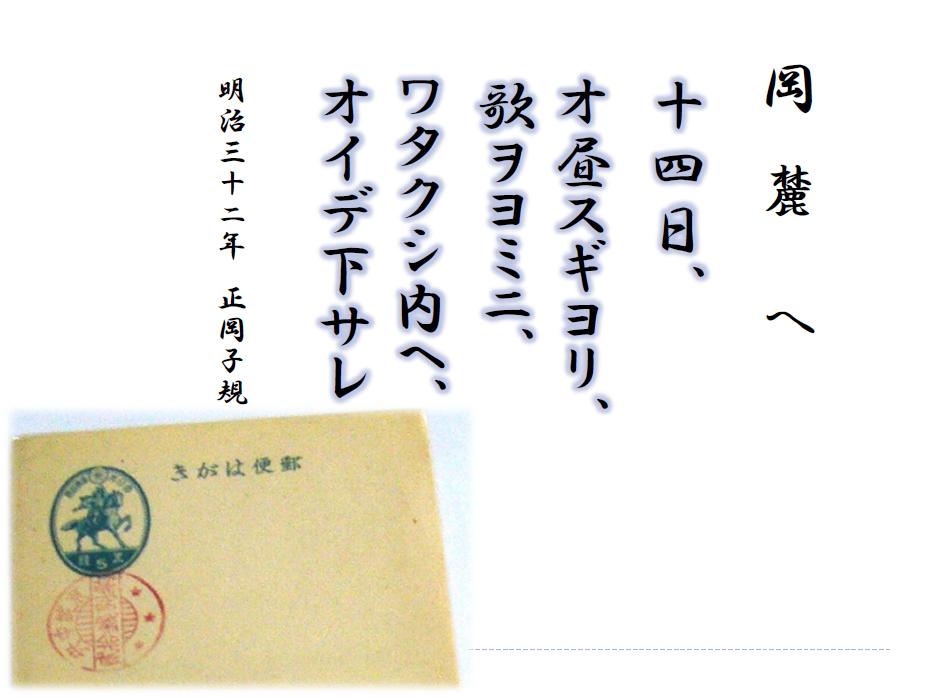 岡 麓 へ
十四日、
オ昼スギヨリ、
歌ヲヨミニ、
ワタクシ内へ、
オイデ下サレ
明治三十二年 正岡子規
きがはは便郵
5